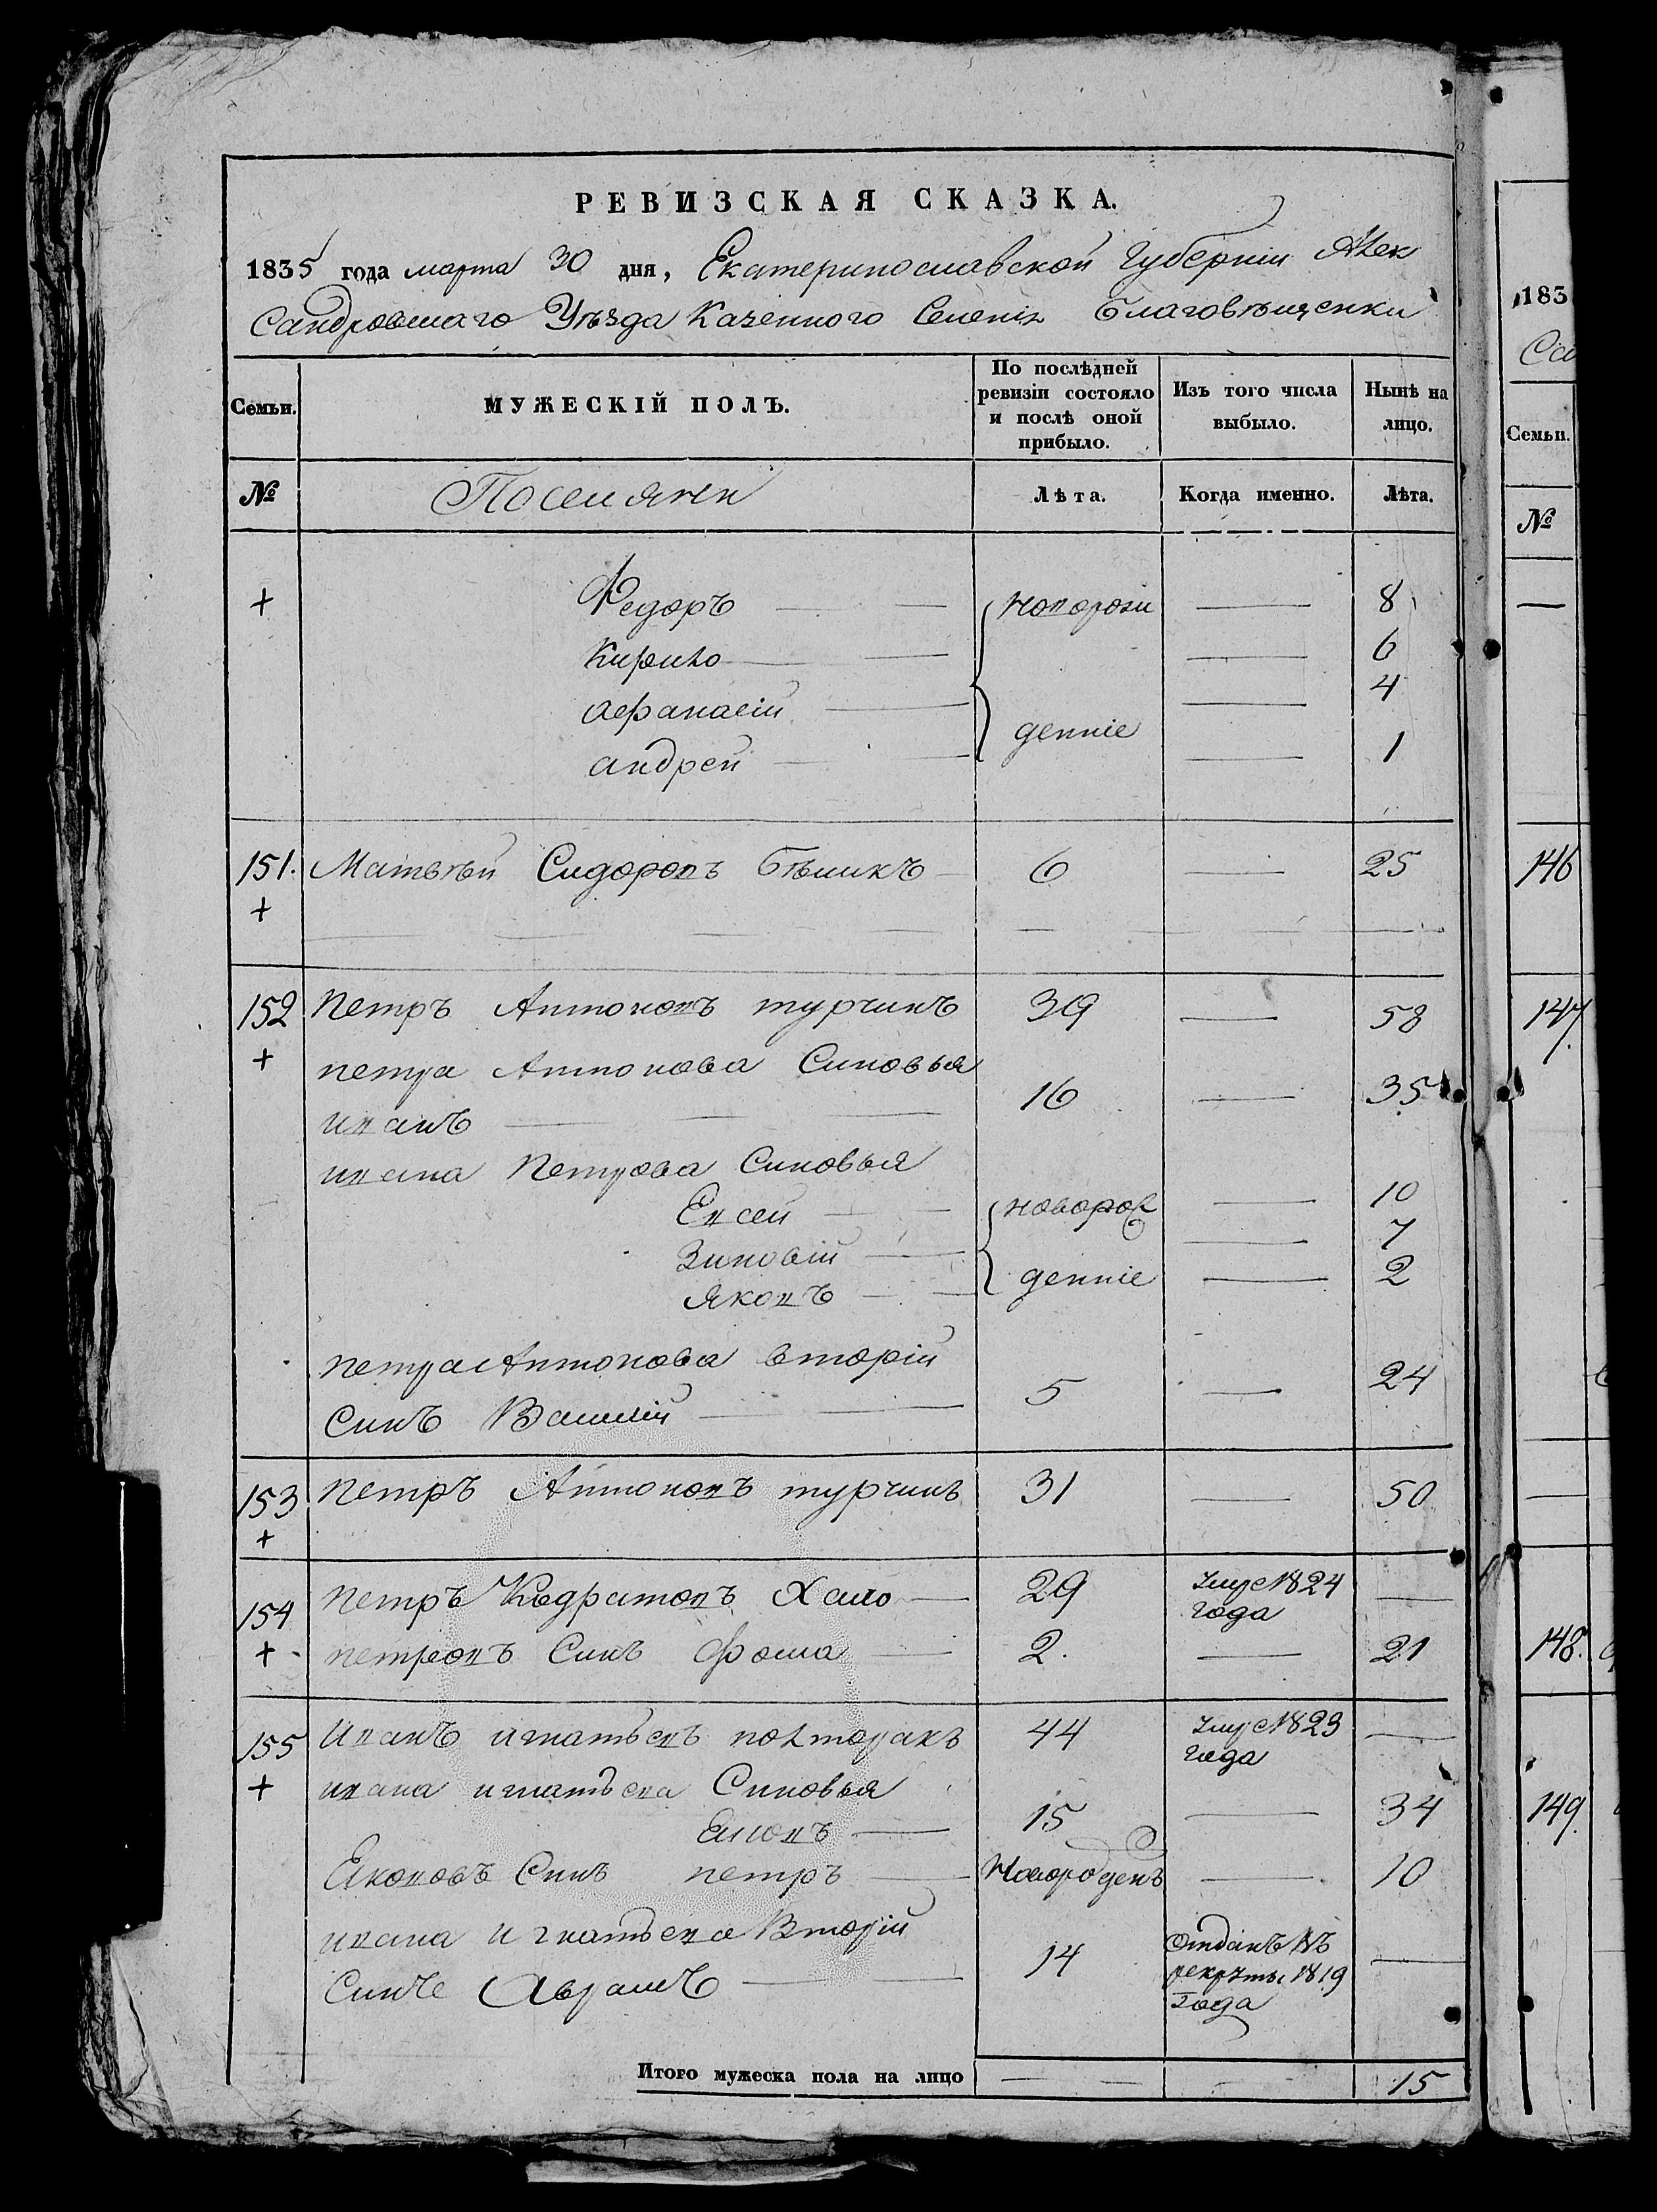 РЕВИЗСКАЯ СКАЗКА.
1835 года марта 30 дня, Екатеринославской Губерніи Алек
сандровскаго Уѣзда Казенного Селенія Благовѣщенки
Семьи.
МУЖЕСКІЙ ПОЛЪ.
По послѣдней ревизіи состояло и послѣ оной прибыло.
Изъ того числа выбыло.
Нынѣ на лицо.
№ Поселяне Лѣта. Когда именно. Лѣта.
+ Федоръ — новорож — 8
Кирило — — 6
Афанасій — — 4
денніе
Андрей — — 1
151. Матвѣй Сидоровъ Бѣликъ — 6 — 25
+
152 Петръ Антоновъ турчинъ 39 — 58
+ петра Антонова Синовья
иванъ — 16 — 35
ивана Петрова Синовья
Евсей — новорож — 10
Зиновій — — 7
денніе
Яковъ — — 2
петра Антонова вторій
Синъ Василій — 5 — 24
153 Петръ Антоновъ турчинъ 31 — 50
+
154 Петръ Кодратовъ Хало — 29 умре 1824 года —
+ петровъ Синъ Фома — 2. — 21
155 Иванъ игнатьевъ полторакъ 44 умре 1823 года —
+ ивана игнатьева Синовья
— 15 — 34
Синъ петръ — Новорожденъ — 10
ивана Игнатьева Вторій
Синъ Аврамъ — 14 Отданъ въ рекруты 1819 года —
Итого мужеска пола на лицо — — — 15
183
Са
Семьи.
№
146
147
148.
149